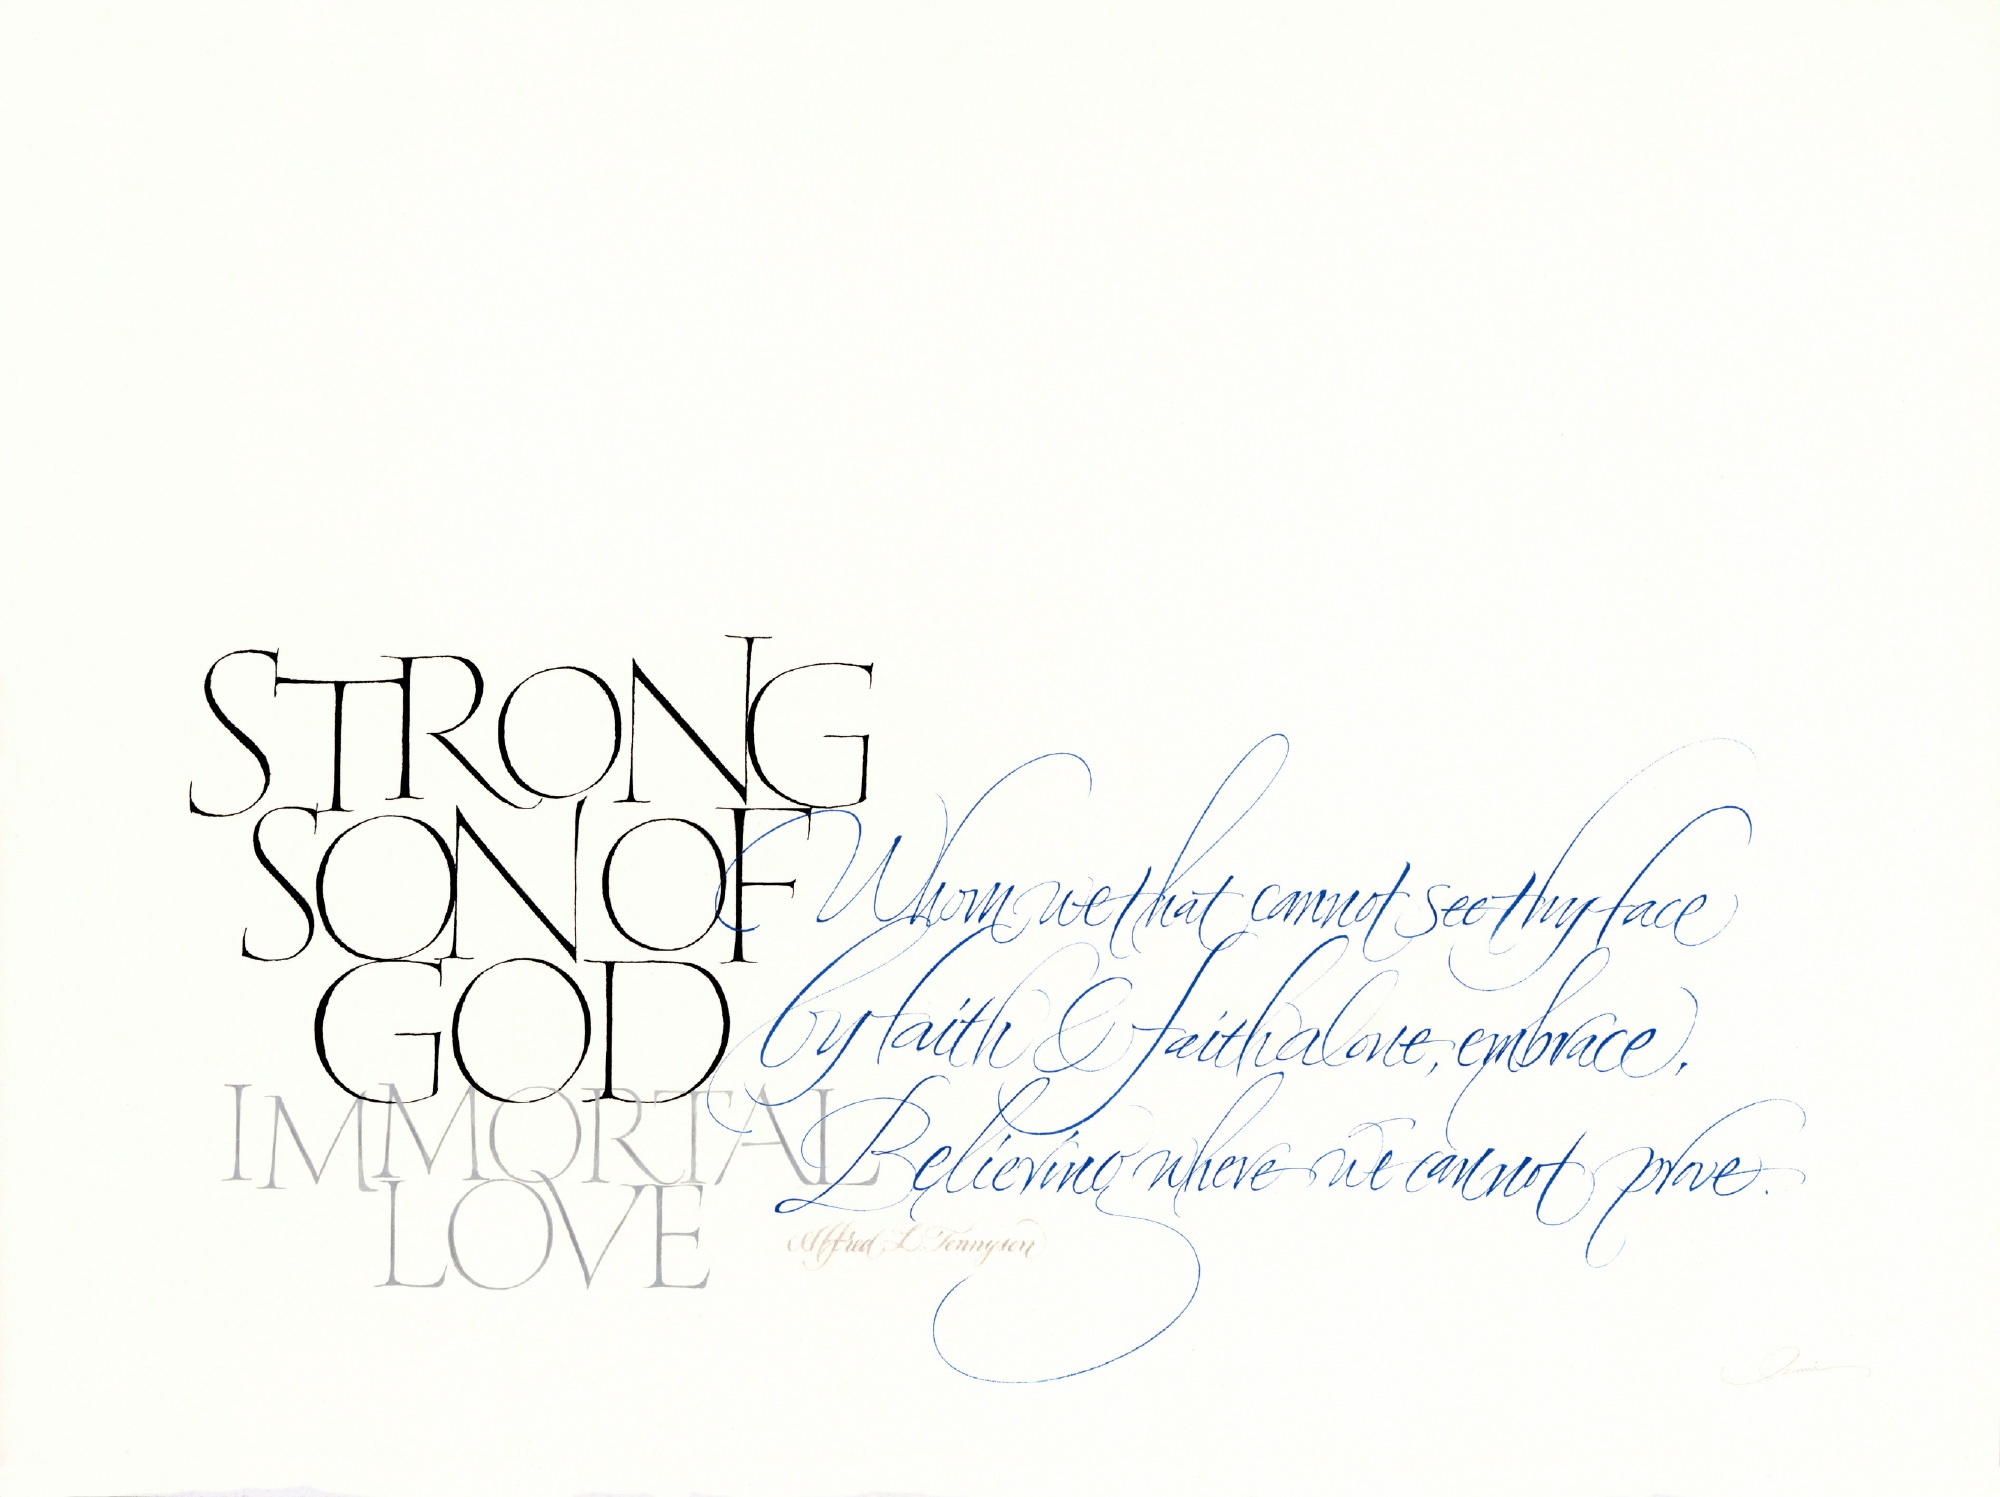 STRONG
SON OF
GOD
IMMORTAL
LOVE
Whom we that cannot see thy face
by faith & faith alone, embrace,
Believing where we cannot prove.
Alfred L. Tennyson